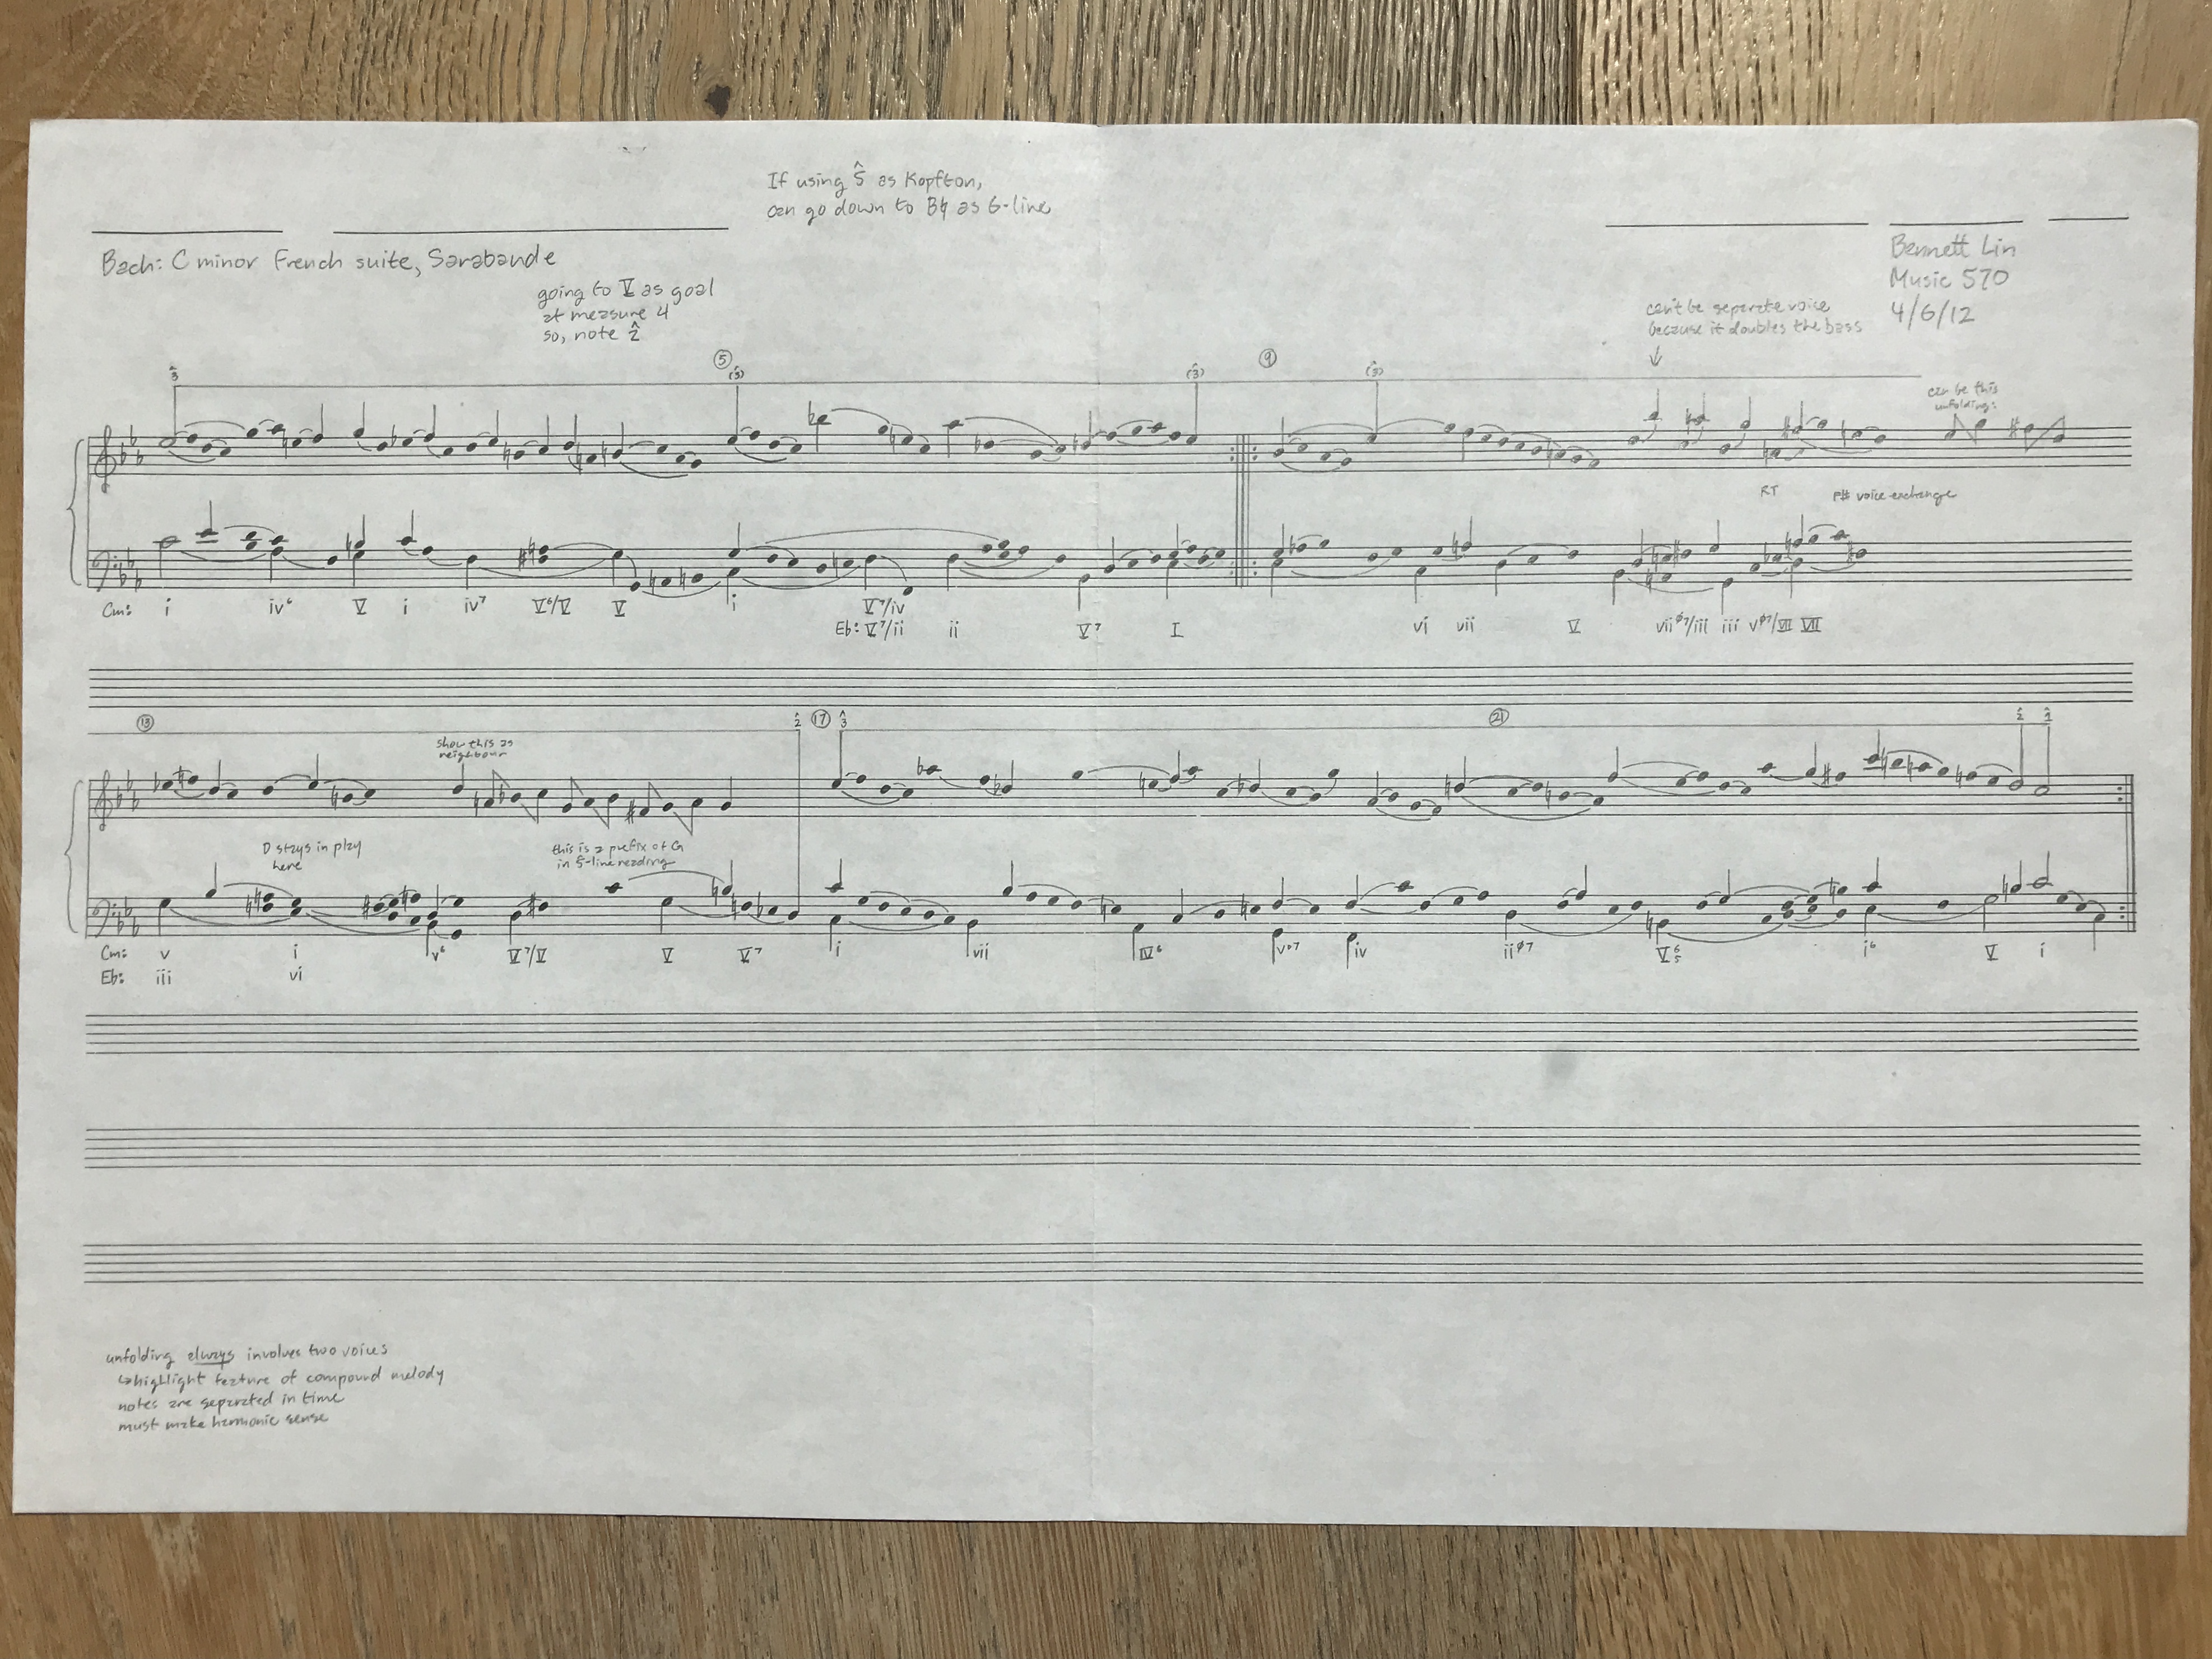 If using 5̂ as Kopfton,
can go down to B♮ as 6-line
Bach: C minor French suite, Sarabande
going to V as goal
at measure 4
so, note 2̂
Bennett Lin
Music 570
4/6/12
can't be separate voice
because it doubles the bass
↓
5 9
3̂ (3̂) (3̂) (3̂)
can be this
unfolding:
RT
F# voice-exchange
Cm: i iv⁶ V i iv⁷ V⁶/V V i V⁷/iv
Eb: V⁷/ii ii V⁷ I vi vii V viiø⁷/iii iii vø⁷/VII VII
13 2̂ 17 3̂ 21 2̂ 1̂
show this as
neighbour
D stays in play
here
this is a prefix of G
in 5-line reading
Cm: v i v⁶ V⁷/V V V⁷ i vii IV⁶ v°⁷ iv iiø⁷ V6/5 i⁶ V i
Eb: iii vi
unfolding always involves two voices
↳highlight feature of compound melody
notes are separated in time
must make harmonic sense